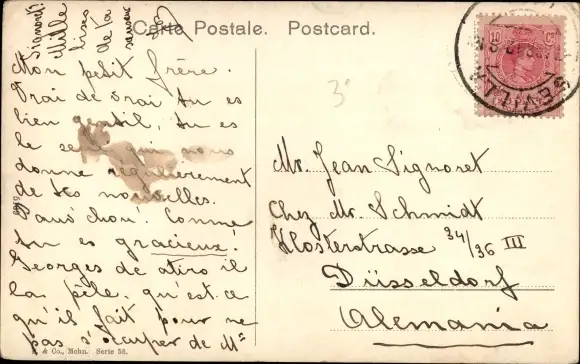 Carte Postale. Postcard.
Mon petit frère.
Vrai de vrai tu es
bien gentil, tu es
le seul qui nous
donne régulièrement
de tes nouvelles.
chou! Comme
tu es gracieux!
Georges de
la pèle, qu'est-ce
qu'il fait pour ne
pas s'occuper de M
Mille
de ta
Signoret
10 Cs
SEVILLA
3
Mr. Jean Signoret
Chez Mr. Schmidt
Klosterstrasse 34/36 III
Düsseldorf
Alemania
& Co., Mchn. Serie 56.